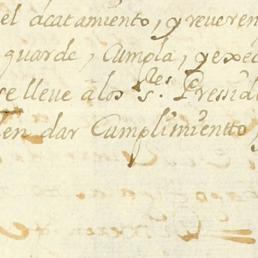 el acatamiento, y reveren
guarde, Cumpla, y exec
se lleve a los s.res Presid
en dar Cumplimientto,